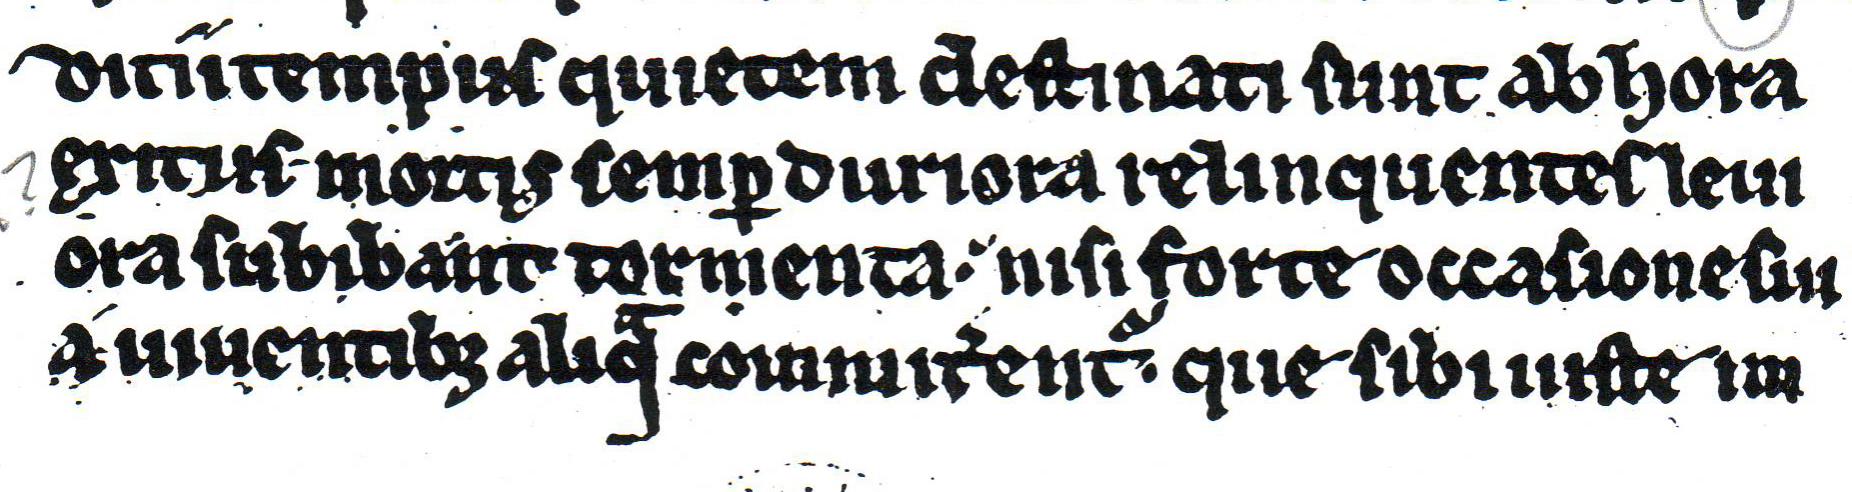 ditũ tempus quietem destinati sunt ab hora
exitus mortis semꝑ duriora relinquentes leui
ora subibant tormenta. nisi forte occasione sui
a uiuentibꝫ aliqͣ committerentᷣ. que sibi iuste im